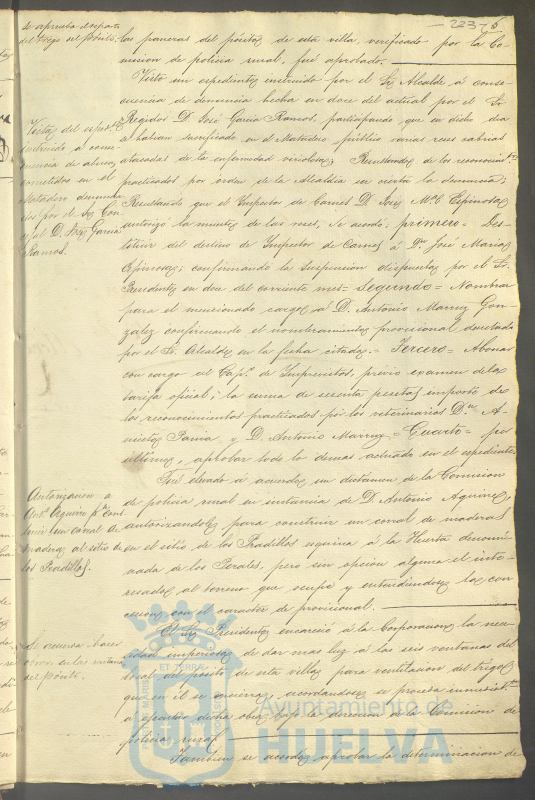 223
Se aprueba el reparto
del trigo del pósito.
las paneras del pósito de esta villa, verificado por la Co-
mision de policia rural, fué aprobado.
Visto un espediente instruido por el Sr. Alcalde á conse-
cuencia de denuncia hecha en doce del actual por el Sr.
Regidor D. José García Ramos, participando que en dicho dia
se habian sacrificado en el Matadero público varias reses cabrias
atacadas de la enfermedad viruelosa; Resultando de los reconocim.tos
practicados por orden de la Alcaldia ser cierta la denuncia;
Resultando que el Inspector de Carnes D. José M.ª Espinosa
autorizó la muerte de las reses, se acordó: primero = Des-
tituir del destino de Inspector de Carnes á Dn. José Maria
Espinosa; confirmando la suspension dispuesta por el Sr.
Presidente en doce del corriente mes = Segundo = Nombrar
para el mencionado cargo á D. Antonio Marruz Gon-
zalez confirmando el nombramiento provisional decretado
por el Sr. Alcalde en la fecha citada = Tercero = Abonar
con cargo al Cap.º de Imprevistos, previo examen de la
tarifa oficial, la suma de pesetas importe de
los reconocimientos practicados por los veterinarios Dn. A-
Pania y D. Antonio Marruz = Cuarto = por
ultimo, aprobar todo lo demas actuado en el espediente.
Vista del esped.te
instruido á conse-
cuencia de abusos
cometidos en el
Matadero denuncia-
dos por el Sr. Con-
cejal D. José Garcia
Ramos.
Fué elevado á acuerdo un dictamen de la Comision
de policia rural en instancia de D. Antonio Aguirre,
autorizandole para construir un corral de madera
en el sitio de los Pradillos esquina á la Huerta denomi-
nada de los Perales, pero sin opcion alguna el inte-
resado al terreno que ocupe y entendiendose la con-
cesion con el caracter de provisional.
Autorizacion a
Ant.º Aguirre p.ª cons-
truir un corral de
madera al sitio de
los Pradillos.
El Sr. Presidente encareció á la Corporacion la nece-
sidad imperiosa de dar mas luz á las seis ventanas del
local del pósito de esta villa para ventilacion del trigo
que en él se encierra, acordandose se proceda inmediat.te
a ejecutar dicha obra bajo la direccion de la Comision de
policia rural.
Se acuerda hacer
obras en las ventanas
del pósito.
Tambien se acordó aprobar la determinacion de
Ayuntamiento de
HUELVA